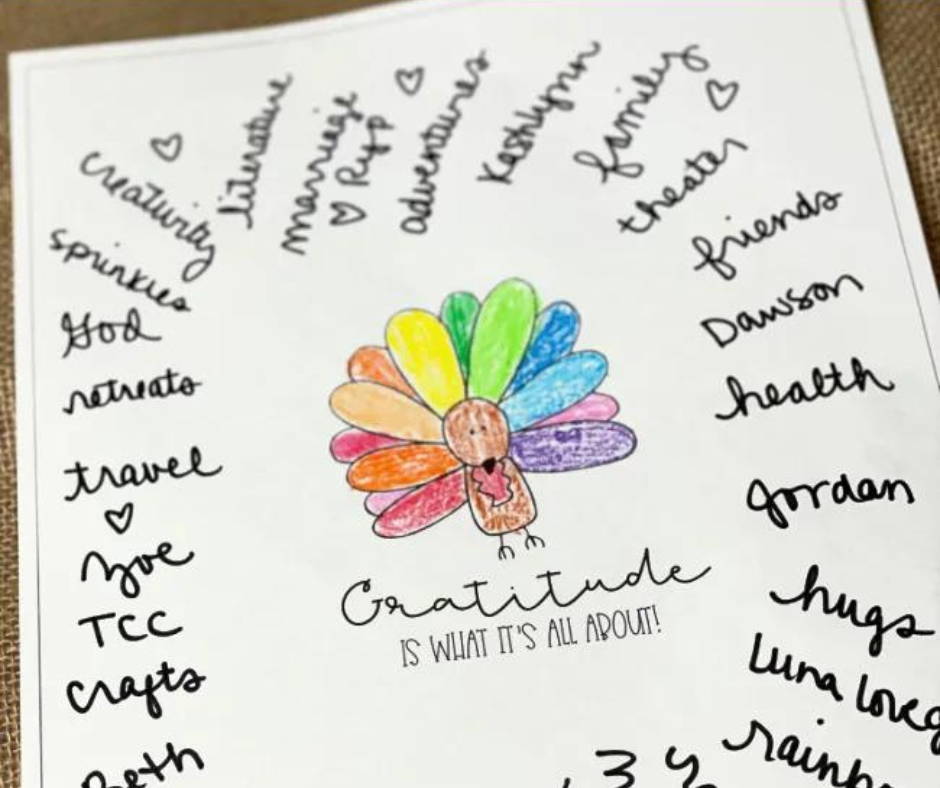 creativity
literature
marriage
adventures
family
theater
sprinkles
God
retreats
travel
Zoe
TCC
crafts
Beth
friends
Dawson
health
Jordan
hugs
Luna Loveg
rainb
Gratitude
IS WHAT IT'S ALL ABOUT!